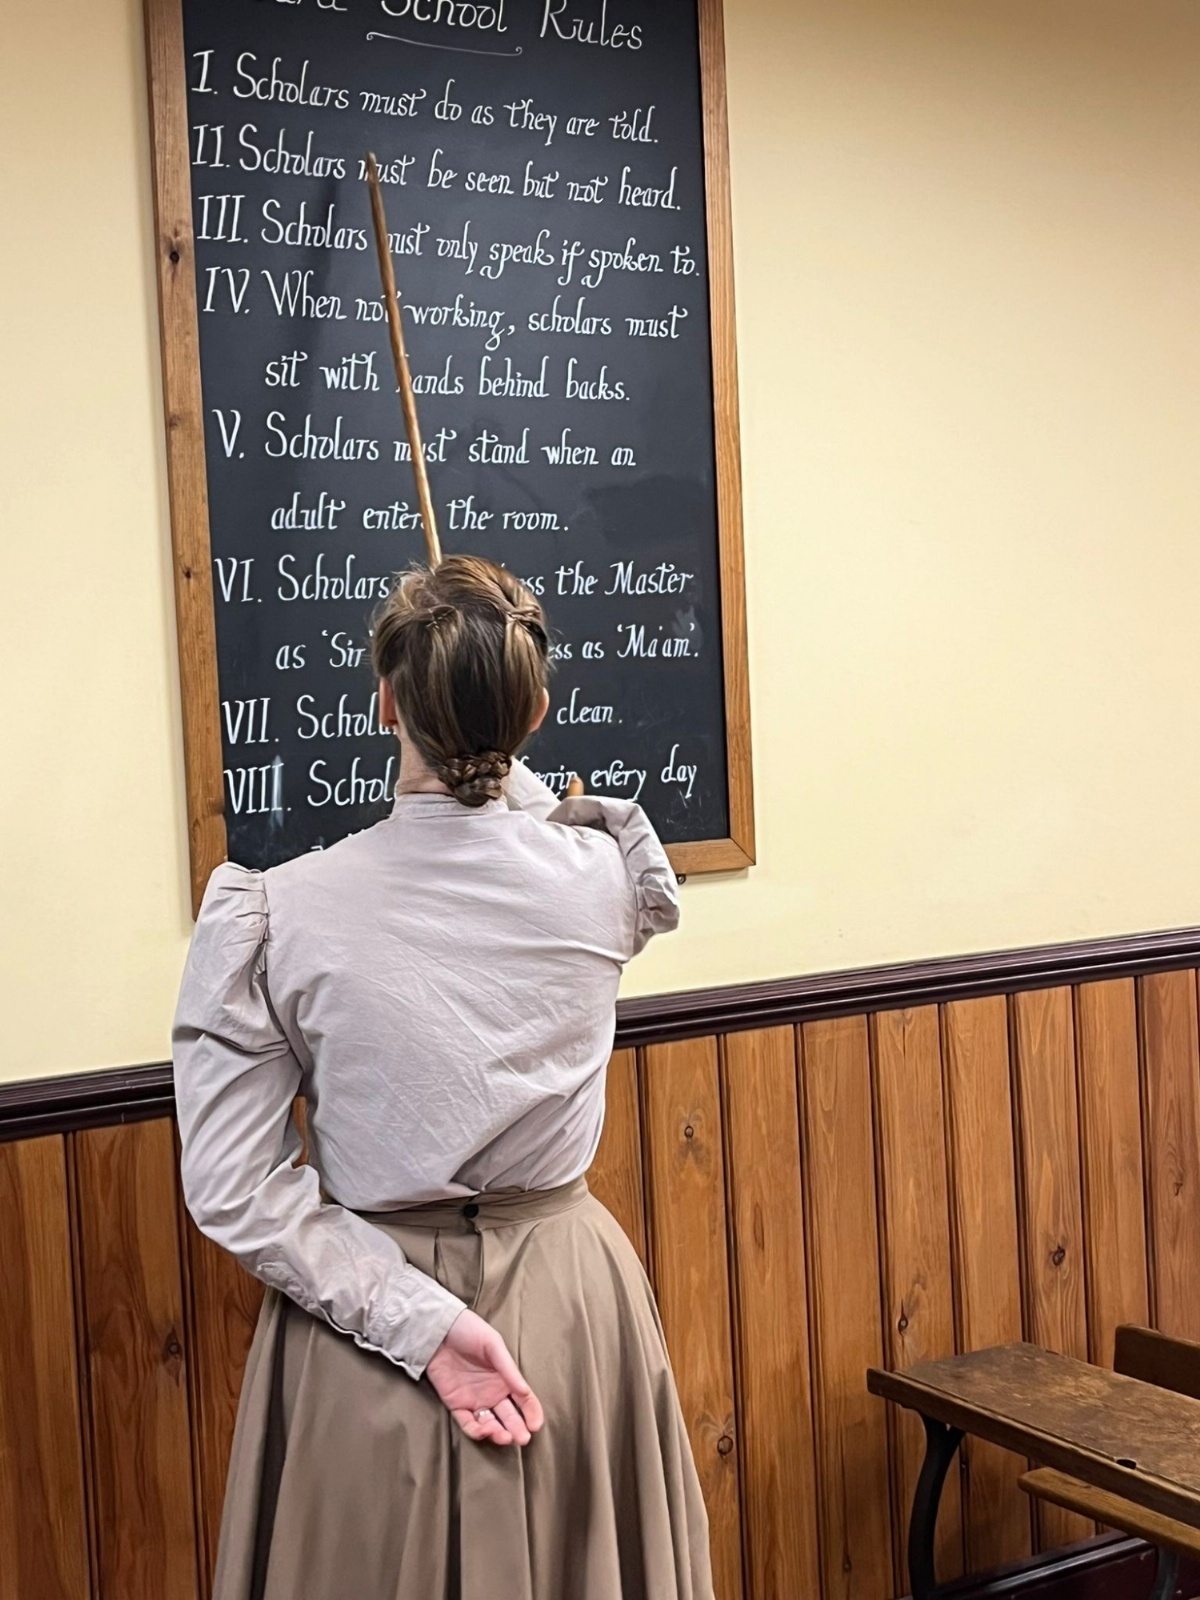 School Rules
I. Scholars must do as they are told.
II. Scholars must be seen but not heard.
III. Scholars must only speak if spoken to.
IV. When not working, scholars must
sit with hands behind backs.
V. Scholars must stand when an
adult enters the room.
VI. Scholars the Master
as 'Sir' as 'Ma'am'.
VII. clean.
VIII. every day